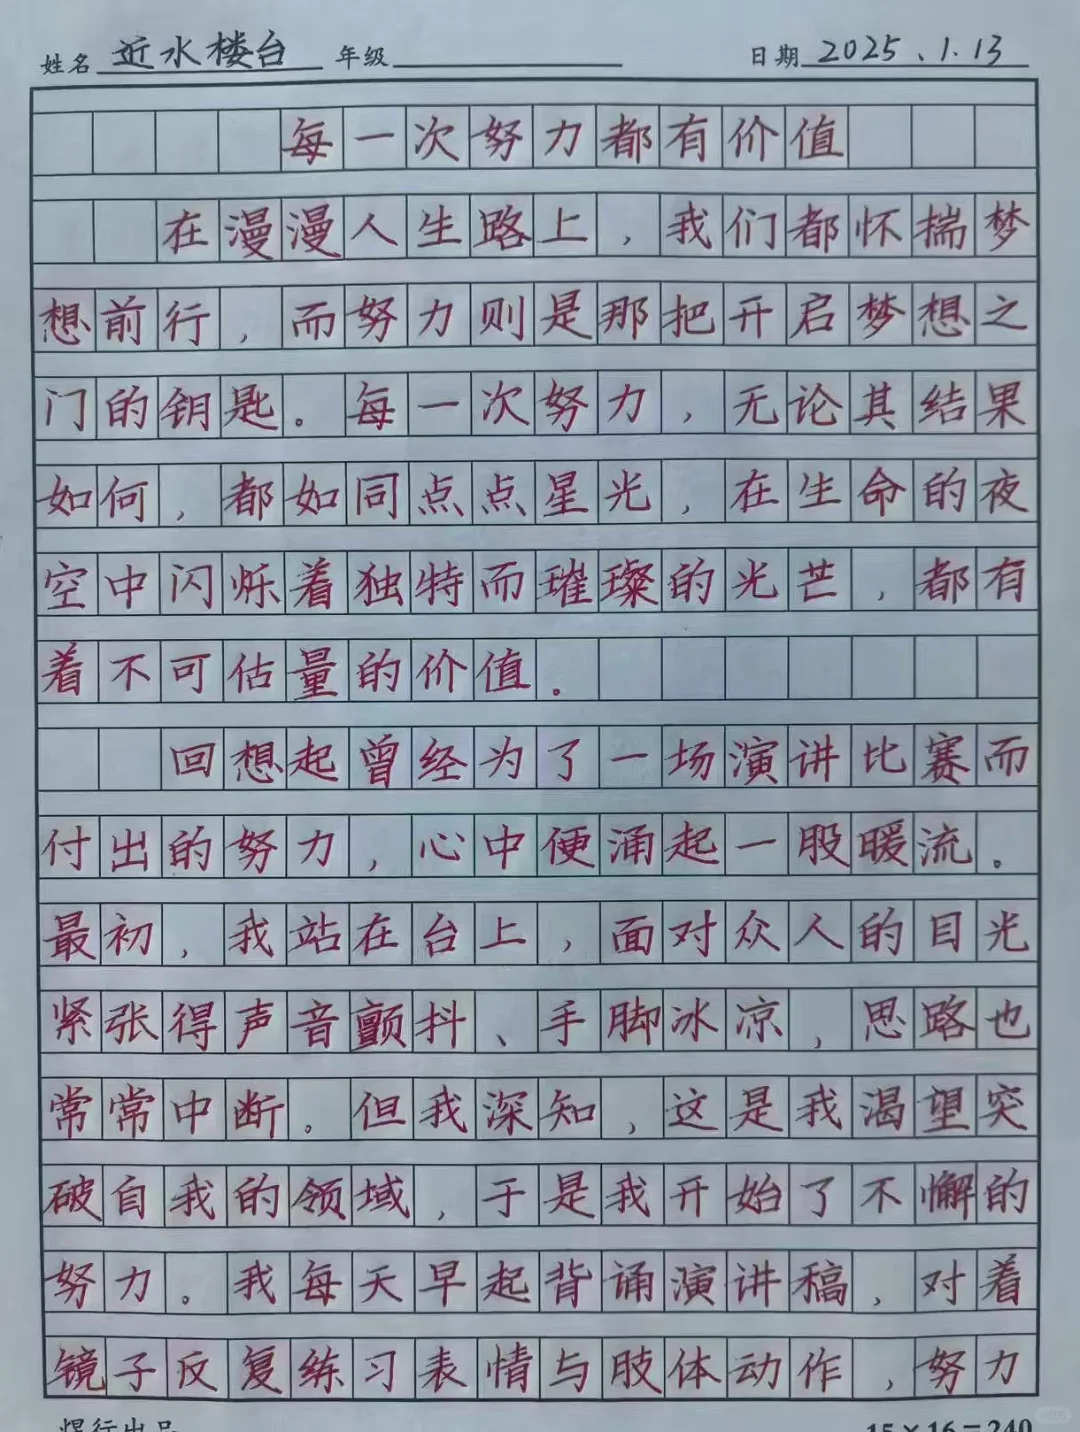 姓名 近水楼台 年级 日期 2025.1.13
每一次努力都有价值
在漫漫人生路上，我们都怀揣梦
想前行，而努力则是那把开启梦想之
门的钥匙。每一次努力，无论其结果
如何，都如同点点星光，在生命的夜
空中闪烁着独特而璀璨的光芒，都有
着不可估量的价值。
回想起曾经为了一场演讲比赛而
付出的努力，心中便涌起一股暖流。
最初，我站在台上，面对众人的目光
紧张得声音颤抖、手脚冰凉，思路也
常常中断。但我深知，这是我渴望突
破自我的领域，于是我开始了不懈的
努力。我每天早起背诵演讲稿，对着
镜子反复练习表情与肢体动作，努力
15×16=240